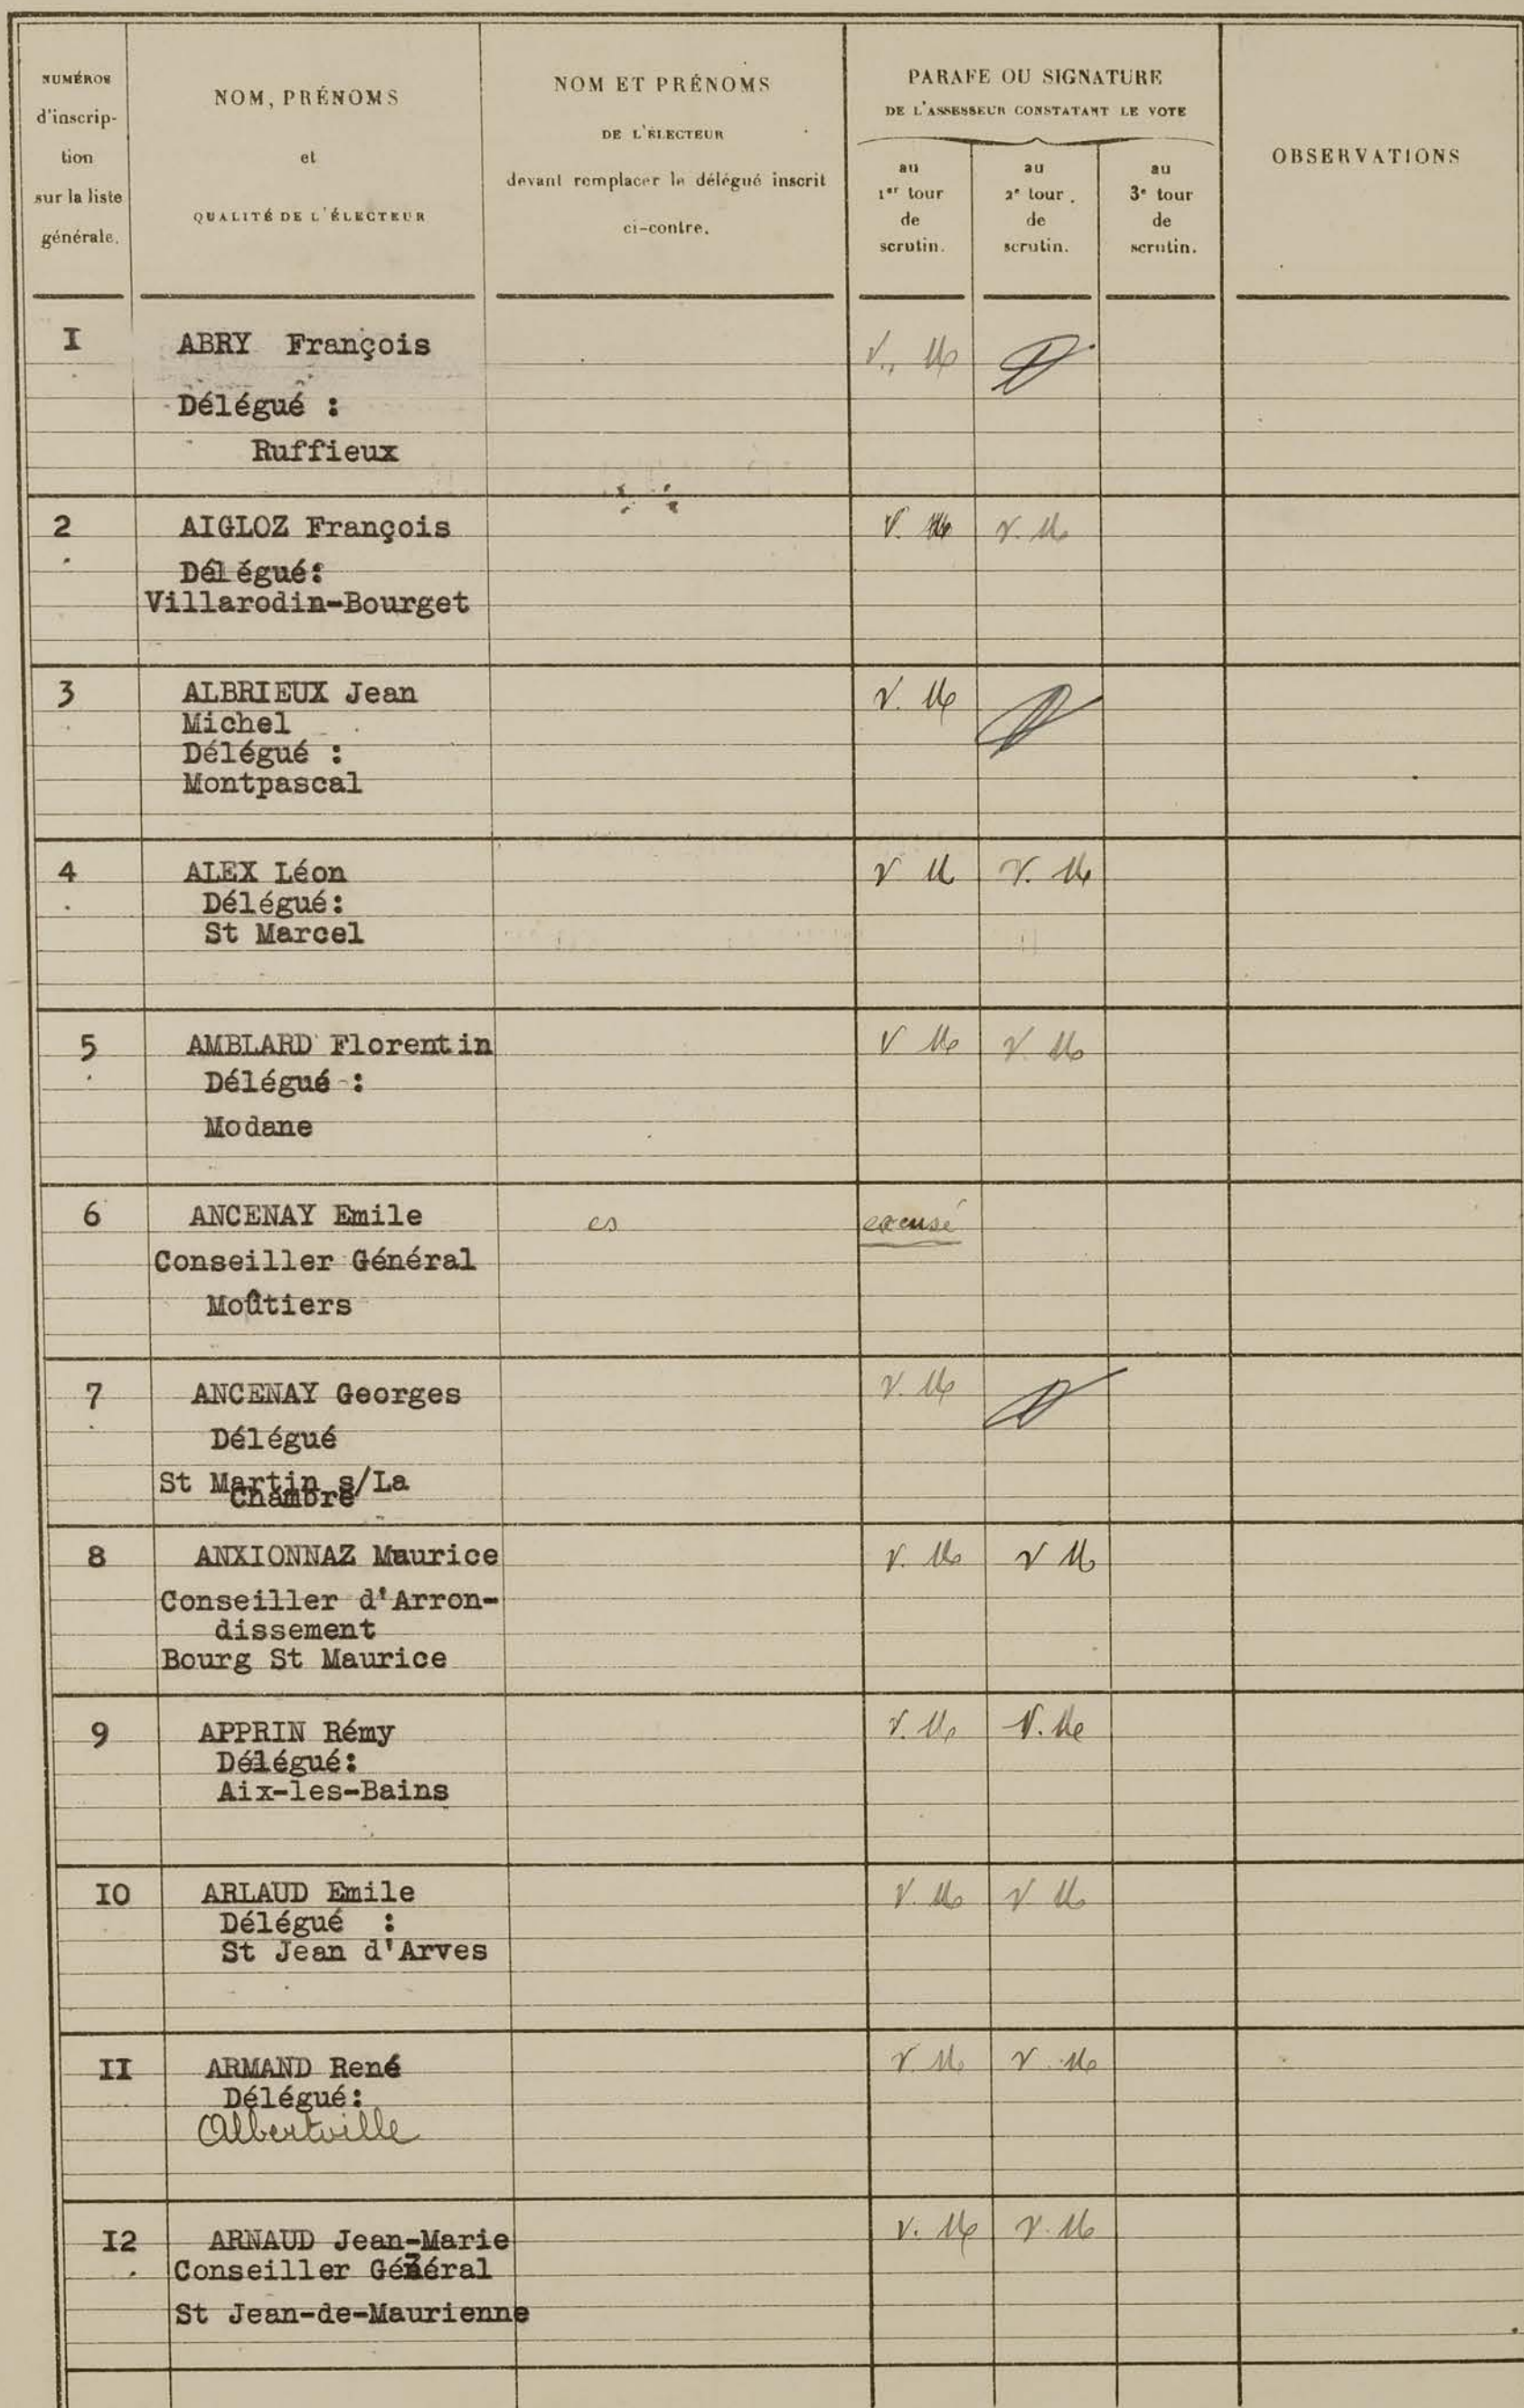 NUMÉROS
d'inscrip-
tion
sur la liste
générale.
NOM, PRÉNOMS
et
QUALITÉ DE L'ÉLECTEUR
NOM ET PRÉNOMS
DE L'ÉLECTEUR
devant remplacer le délégué inscrit
ci-contre.
PARAFE OU SIGNATURE
DE L'ASSESSEUR CONSTATANT LE VOTE
au
1er tour
de
scrutin.
au
2e tour.
de
scrutin.
au
3e tour
de
scrutin.
OBSERVATIONS
I ABRY François
Délégué :
Ruffieux
2 AIGLOZ François
Délégué:
Villarodin-Bourget
3 ALBRIEUX Jean
Michel
Délégué :
Montpascal
4 ALEX Léon
Délégué:
St Marcel
5 AMBLARD Florentin
Délégué :
Modane
6 ANCENAY Emile es excusé
Conseiller Général
Moûtiers
7 ANCENAY Georges
Délégué
St Martin s/La
Chambre
8 ANXIONNAZ Maurice
Conseiller d'Arron-
dissement
Bourg St Maurice
9 APPRIN Rémy
Délégué:
Aix-les-Bains
IO ARLAUD Emile
Délégué :
St Jean d'Arves
II ARMAND René
Délégué:
Albertville
I2 ARNAUD Jean-Marie
Conseiller Général
St Jean-de-Maurienne